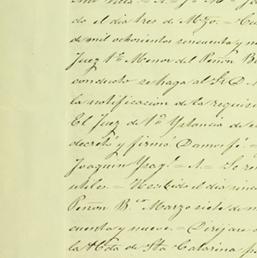 do el dia tres de Mzo. =
de mil ochocientos cincuenta y
Juez 1º Menor del Peñon B
conducto se haga al Sr. D.
la notificacion de la requisi
El Juez de 1ª Ystancia de
decretó y firmó Damos fé. =
Joaquin Yzagª A. = Se
utiles. = Recibido el dia
Peñon Bco. Marzo siete de m
cuenta y nueve. = Dirijase
la Hda de Sta Catarina p